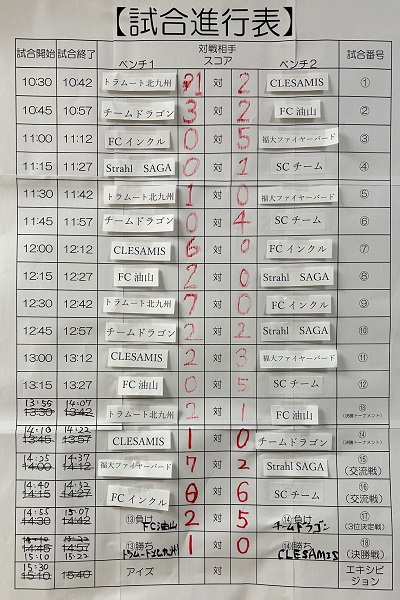 【試合進行表】
試合開始 試合終了 対戦相手 試合番号
ベンチ1 スコア ベンチ2
10:30 10:42 トラムート北九州 1 対 2 CLESAMIS ①
10:45 10:57 チームドラゴン 3 対 2 FC油山 ②
11:00 11:12 FCインクル 0 対 5 福大ファイヤーバード ③
11:15 11:27 Strahl SAGA 0 対 1 SCチーム ④
11:30 11:42 トラムート北九州 1 対 0 福大ファイヤーバード ⑤
11:45 11:57 チームドラゴン 0 対 4 SCチーム ⑥
12:00 12:12 CLESAMIS 6 対 0 FCインクル ⑦
12:15 12:27 FC油山 2 対 0 Strahl SAGA ⑧
12:30 12:42 トラムート北九州 7 対 0 FCインクル ⑨
12:45 12:57 チームドラゴン 2 対 2 Strahl SAGA ⑩
13:00 13:12 CLESAMIS 2 対 3 福大ファイヤーバード ⑪
13:15 13:27 FC油山 0 対 5 SCチーム ⑫
13:55 14:07 ⑬
13:30 13:42 トラムート北九州 2 対 1 FC油山 (決勝トーナメント)
14:10 14:22 ⑭
13:45 13:57 CLESAMIS 1 対 0 チームドラゴン (決勝トーナメント)
14:25 14:37 ⑮
14:00 14:12 福大ファイヤーバード 7 対 2 Strahl SAGA (交流戦)
14:40 14:52 ⑯
14:15 14:27 FCインクル 0 対 6 SCチーム (交流戦)
14:55 15:07 ⑬負け ⑭負け ⑰
14:30 14:42 FC油山 2 対 5 チームドラゴン (3位決定戦)
14:45 14:57 ⑬勝ち 1 対 0 ⑭勝ち ⑱
15:10 15:22 トラムート北九州 CLESAMIS (決勝戦)
15:30
15:10 15:40 アイズ 対 エキシビション